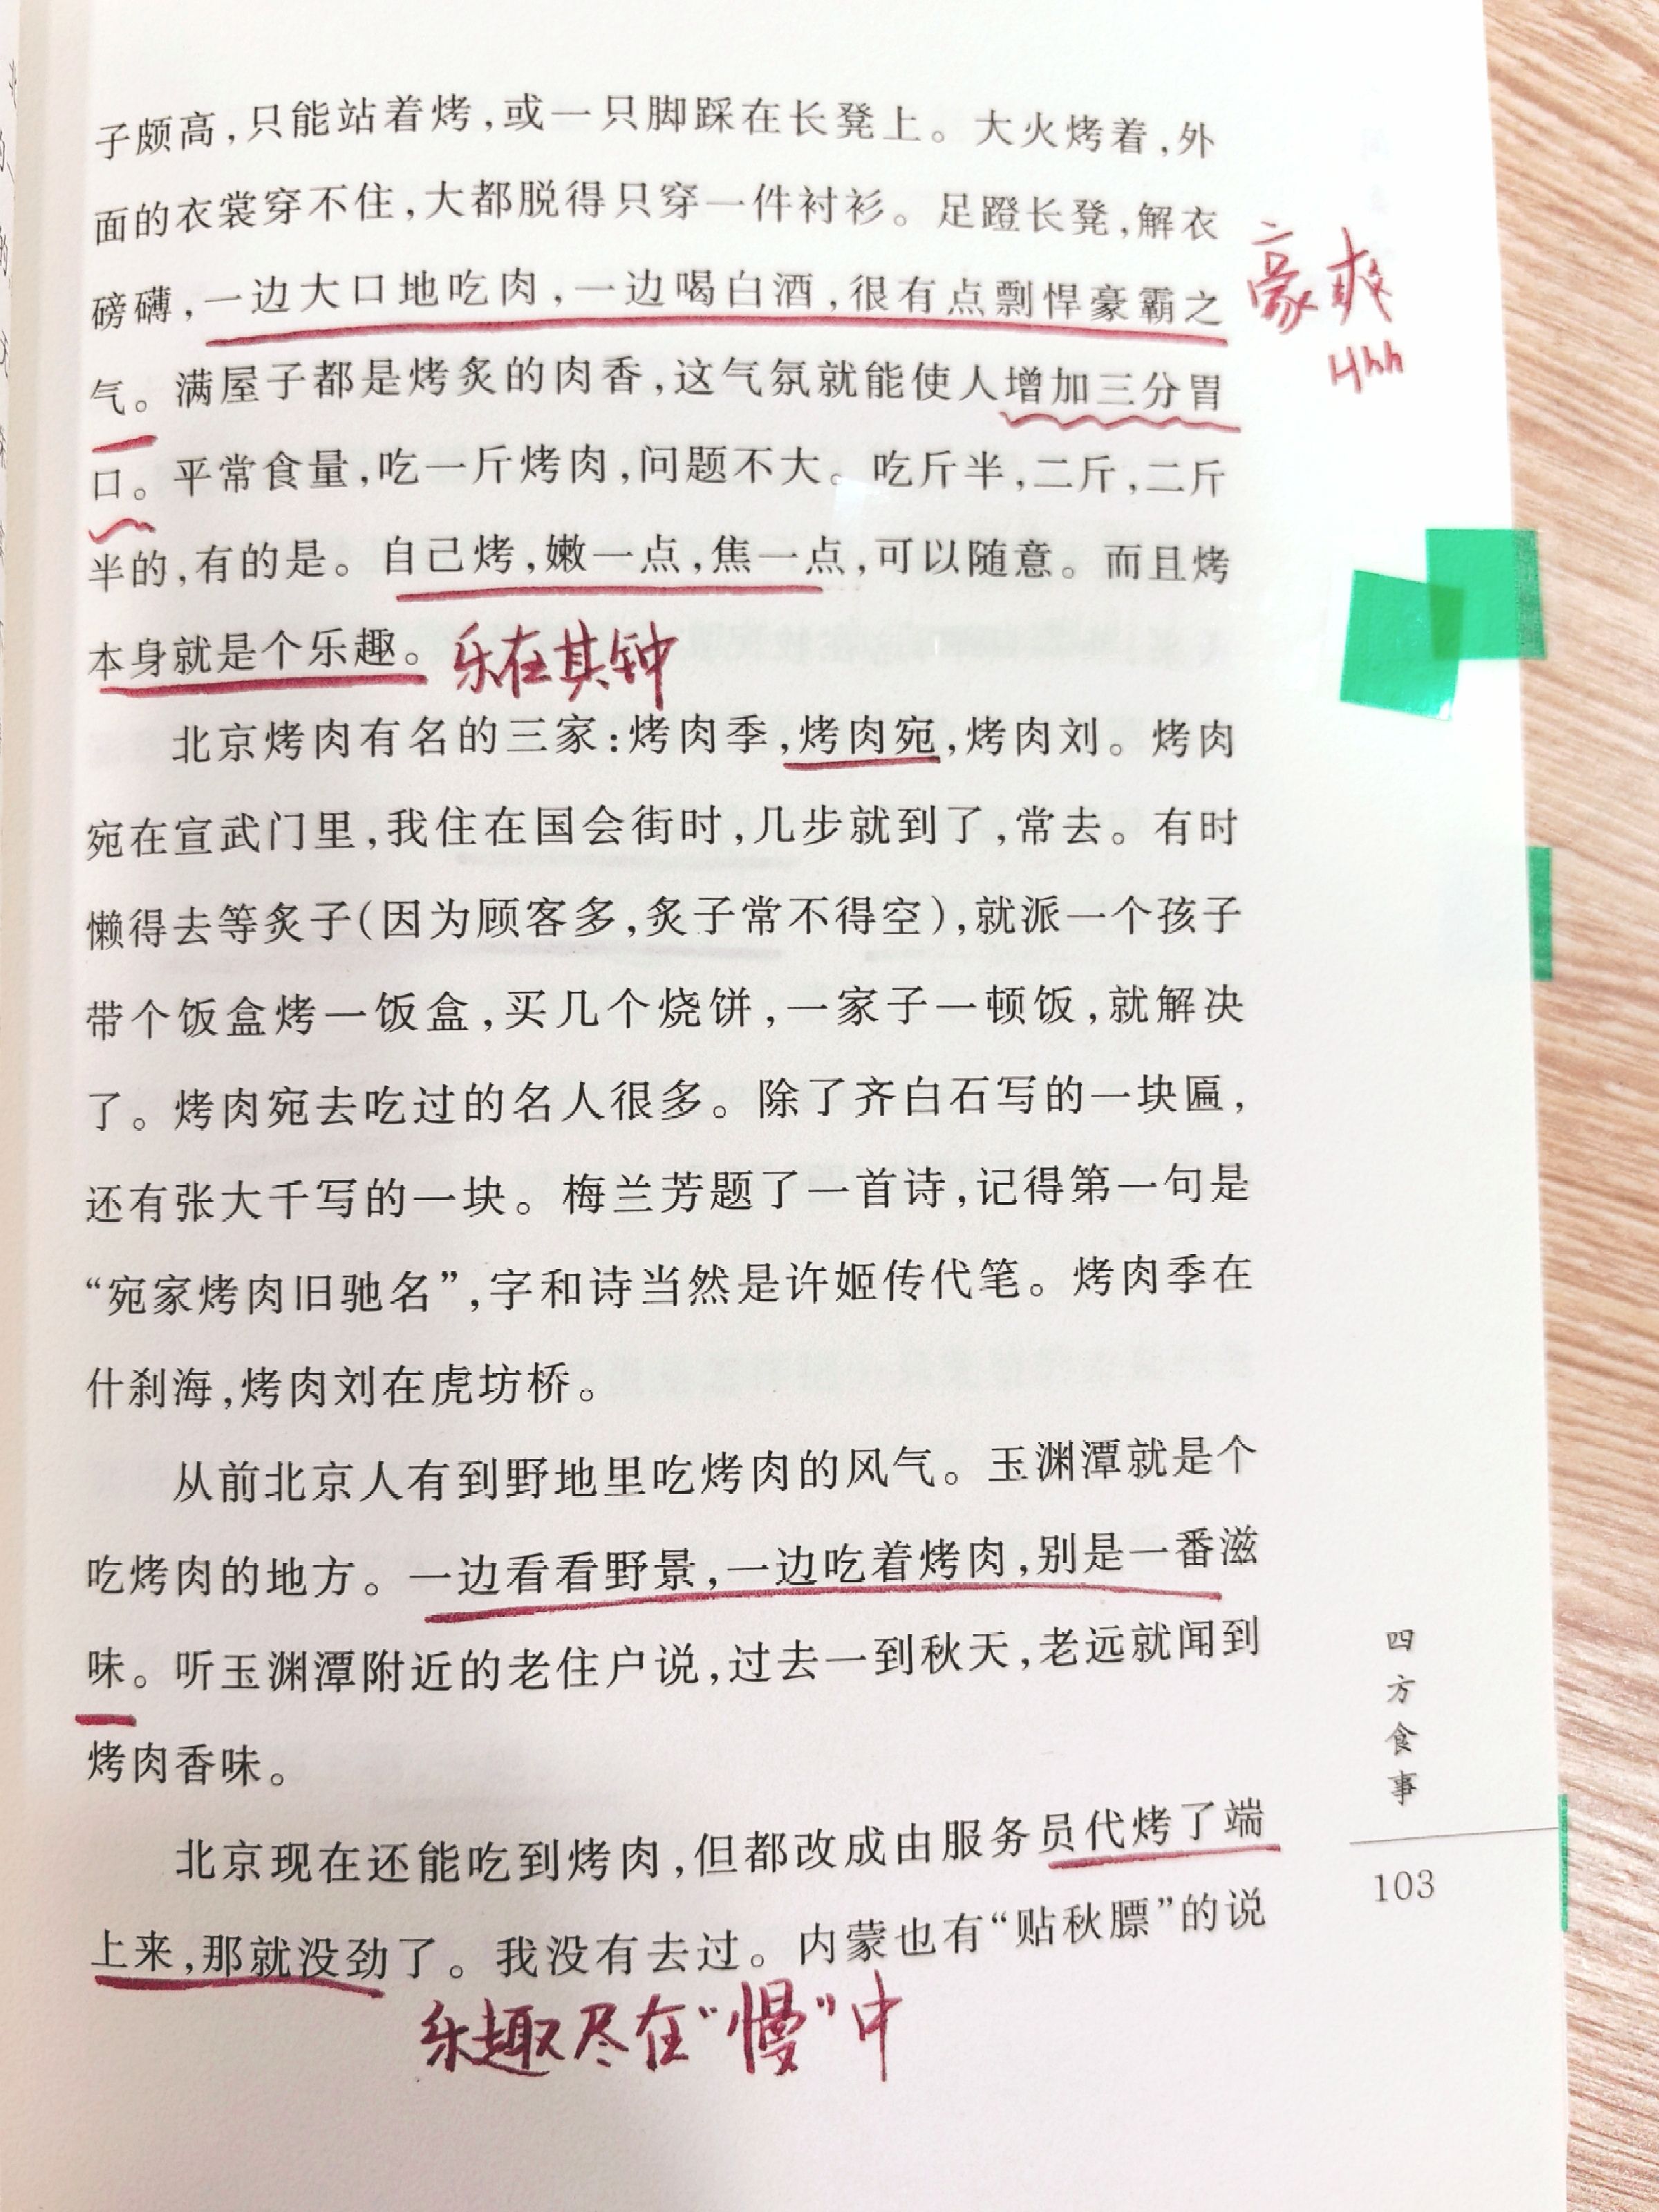 子颇高,只能站着烤,或一只脚踩在长凳上。大火烤着,外
面的衣裳穿不住,大都脱得只穿一件衬衫。足蹬长凳,解衣
磅礴,一边大口地吃肉,一边喝白酒,很有点剽悍豪霸之
豪爽
Hhh
气。满屋子都是烤炙的肉香,这气氛就能使人增加三分胃
口。平常食量,吃一斤烤肉,问题不大。吃斤半,二斤,二斤
半的,有的是。自己烤,嫩一点,焦一点,可以随意。而且烤
本身就是个乐趣。
乐在其钟
北京烤肉有名的三家:烤肉季,烤肉宛,烤肉刘。烤肉
宛在宣武门里,我住在国会街时,几步就到了,常去。有时
懒得去等炙子(因为顾客多,炙子常不得空),就派一个孩子
带个饭盒烤一饭盒,买几个烧饼,一家子一顿饭,就解决
了。烤肉宛去吃过的名人很多。除了齐白石写的一块匾,
还有张大千写的一块。梅兰芳题了一首诗,记得第一句是
“宛家烤肉旧驰名”,字和诗当然是许姬传代笔。烤肉季在
什刹海,烤肉刘在虎坊桥。
从前北京人有到野地里吃烤肉的风气。玉渊潭就是个
吃烤肉的地方。一边看看野景,一边吃着烤肉,别是一番滋
味。听玉渊潭附近的老住户说,过去一到秋天,老远就闻到
烤肉香味。
北京现在还能吃到烤肉,但都改成由服务员代烤了端
上来,那就没劲了。我没有去过。内蒙也有“贴秋膘”的说
乐趣尽在“慢”中
四方食事
103